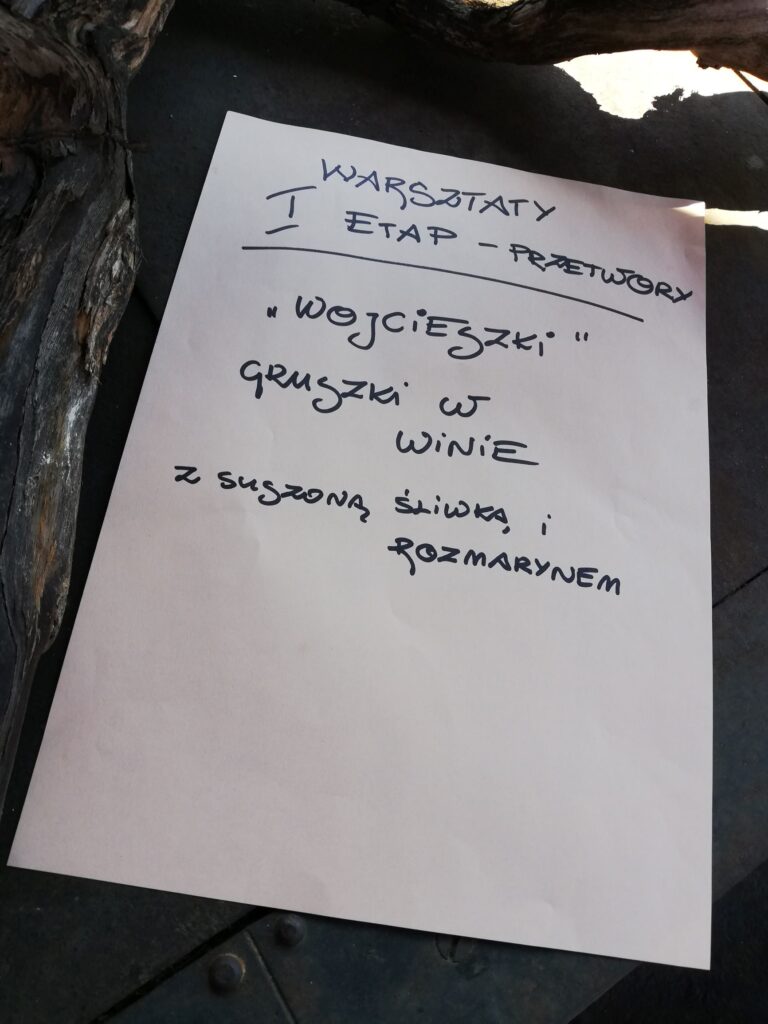 WARSZTATY
I ETAP - PRZETWORY
„WOJCIESZKI"
GRUSZKI W
WINIE
Z SUSZONĄ ŚLIWKĄ I
ROZMARYNEM